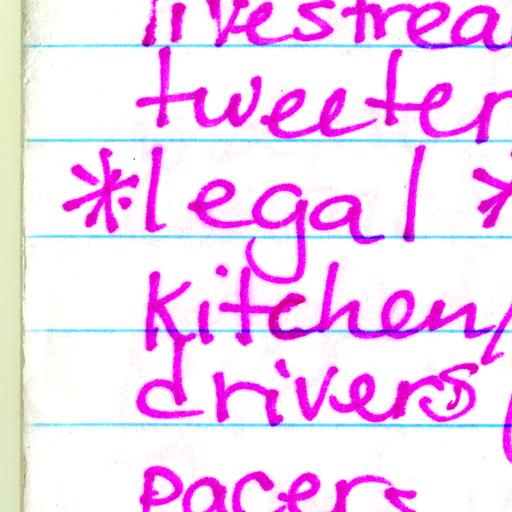 livestrea
tweeter
*legal *
kitchen/
drivers
pacers